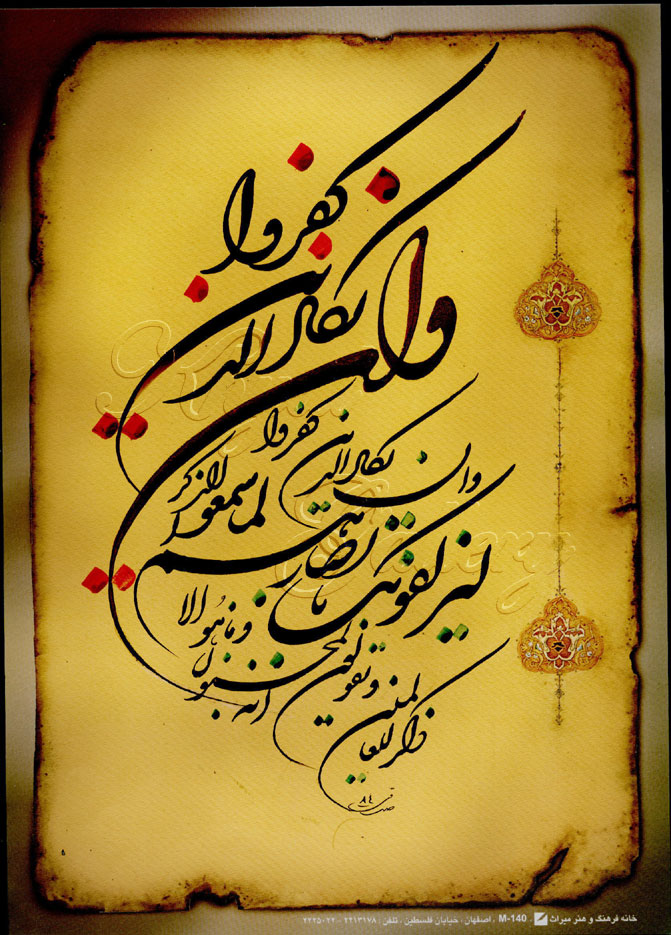 وان یکاد الذین کفروا
وان یکاد الذین کفروا
لیزلقونک بابصارهم
لما سمعوا الذکر
ویقولون انه لمجنون
وما هو الا
ذکر للعالمین
۸۴
خانه فرهنگ و هنر میراث M-140 . اصفهان ، خیابان فلسطین ، تلفن : ۲۲۱۳۱۷۸ - ۲۲۲۵۰۲۲